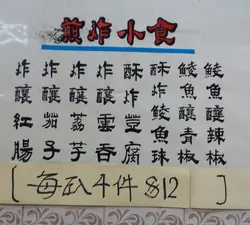 煎炸小食
鯪魚釀辣椒
鯪魚釀青椒
酥炸鯪魚球
酥炸荳腐
炸釀雲吞
炸釀荔芋
炸釀茄子
炸釀紅腸
[ 每 4件 $12 ]